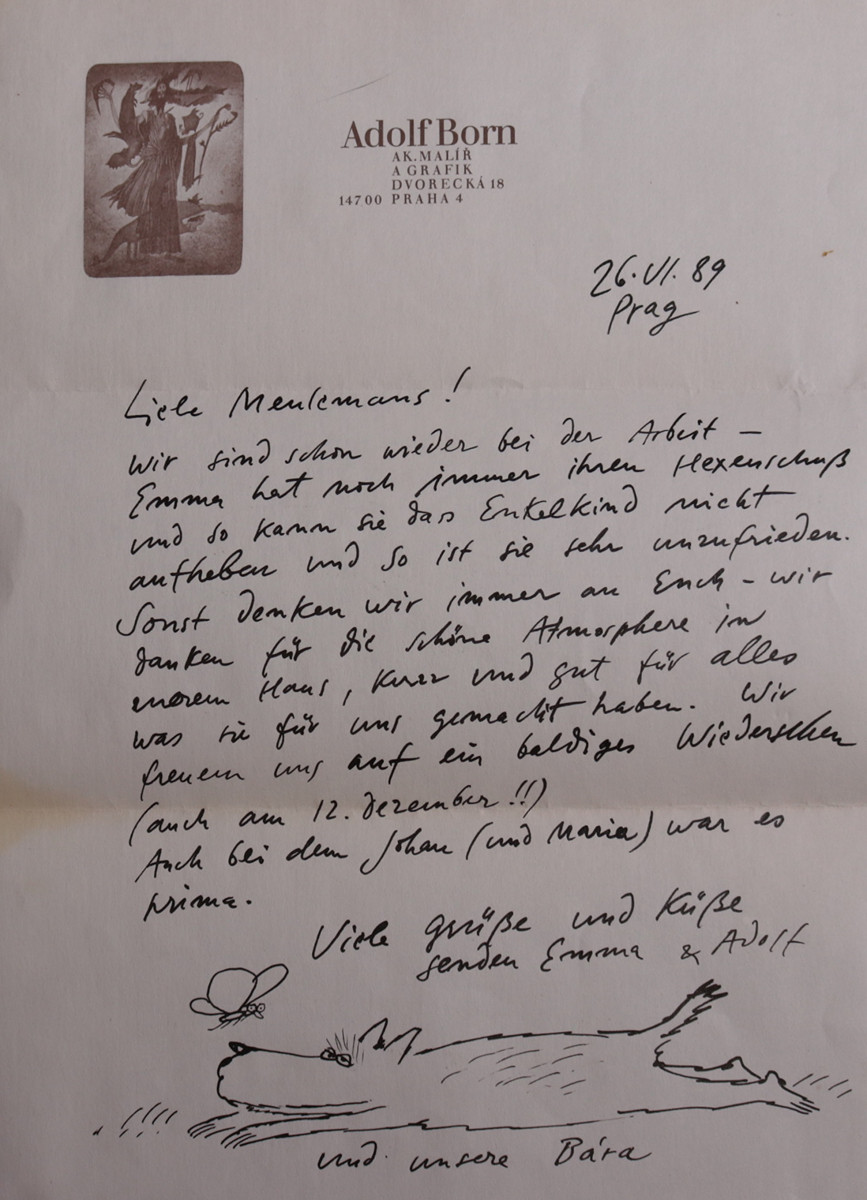 Adolf Born
AK. MALÍŘ
A GRAFIK
DVORECKÁ 18
14700 PRAHA 4
26. VI. 89
Prag
Liebe Meulemans!
Wir sind schon wieder bei der Arbeit –
Emma hat noch immer ihren Hexenschuß
und so kann sie das Enkelkind nicht
aufheben und so ist sie sehr unzufrieden.
Sonst denken wir immer an Euch – wir
danken für die schöne Atmosphere in
eurem Haus, kurz und gut für alles
was sie für uns gemacht haben. Wir
freuen uns auf ein baldiges Wiedersehen
(auch am 12. Dezember!!)
Auch bei dem Johan (und Maria) war es
prima.
Viele Grüße und Küße
senden Emma & Adolf
und unsere Bára